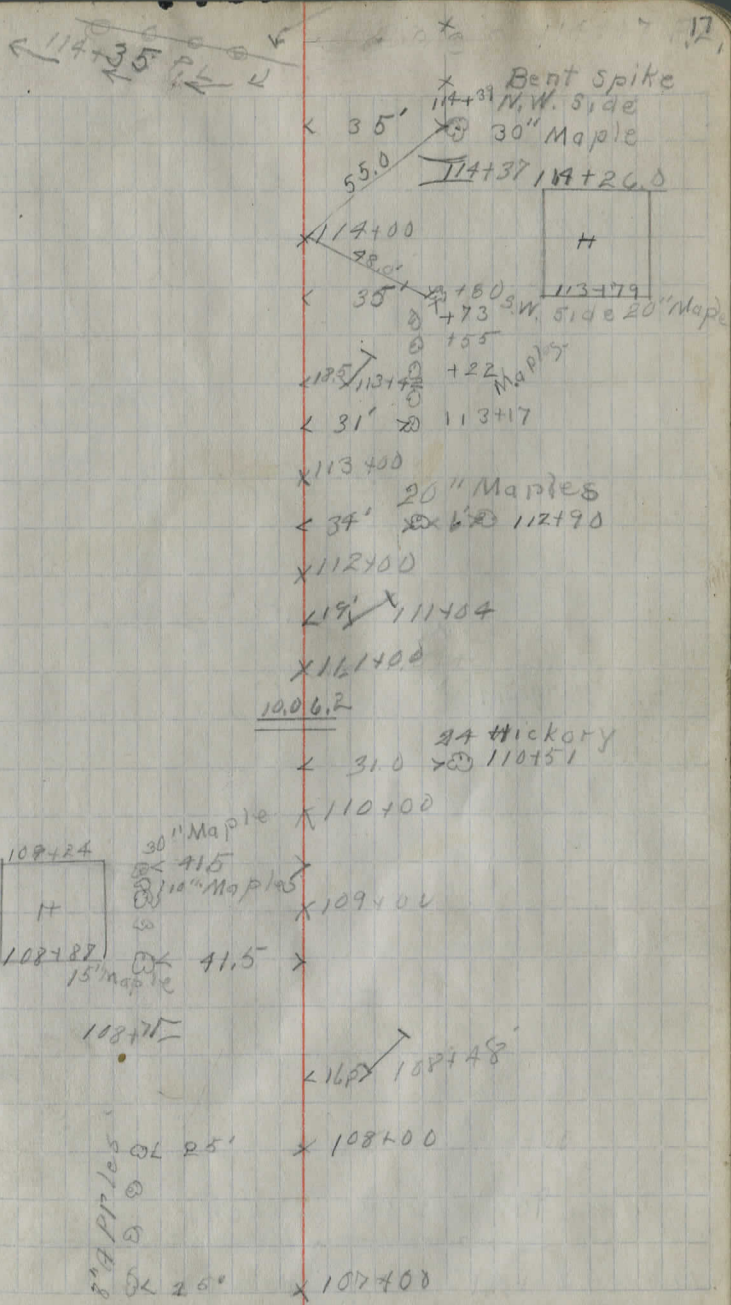 12.
114+35
P.L.
Bent Spike
114+39 N.W. Side
35' 30" Maple
55.0
114+37 114+26.0
114+00 H
48.0'
35' +80 113+79
S.W. Side 20" Maple
+73
+55
+22 Maples
18.5 113+42
31' 113+17
113+00
20" Maples
34' 6' 112+90
112+00
19' 111+04
111+00
10.06.2
24 Hickory
31.0 110+51
110+00
30" Maple
109+24 41.5
10" Maples
H 109+00
108+88 41.5
15" Maple
108+75
16.5 108+48
25' 108+00
8" Apples
25' 107+00